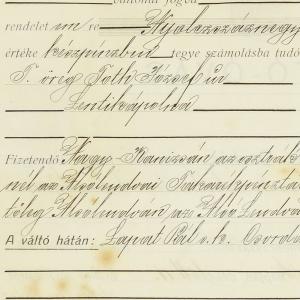 rendelet m re Nyolczszáznegy
értéke készpénzben tegye számolásba tudó
T. özv. Tóth József úr
Lentikápolna
Fizetendő Nagy-Kanizsán az osztrák
nél az Alsólendvai Takarékpénztá
tólag Alsólendván az Alsó Lendva
A váltó hátán: Lapat Pál s. k. Csord